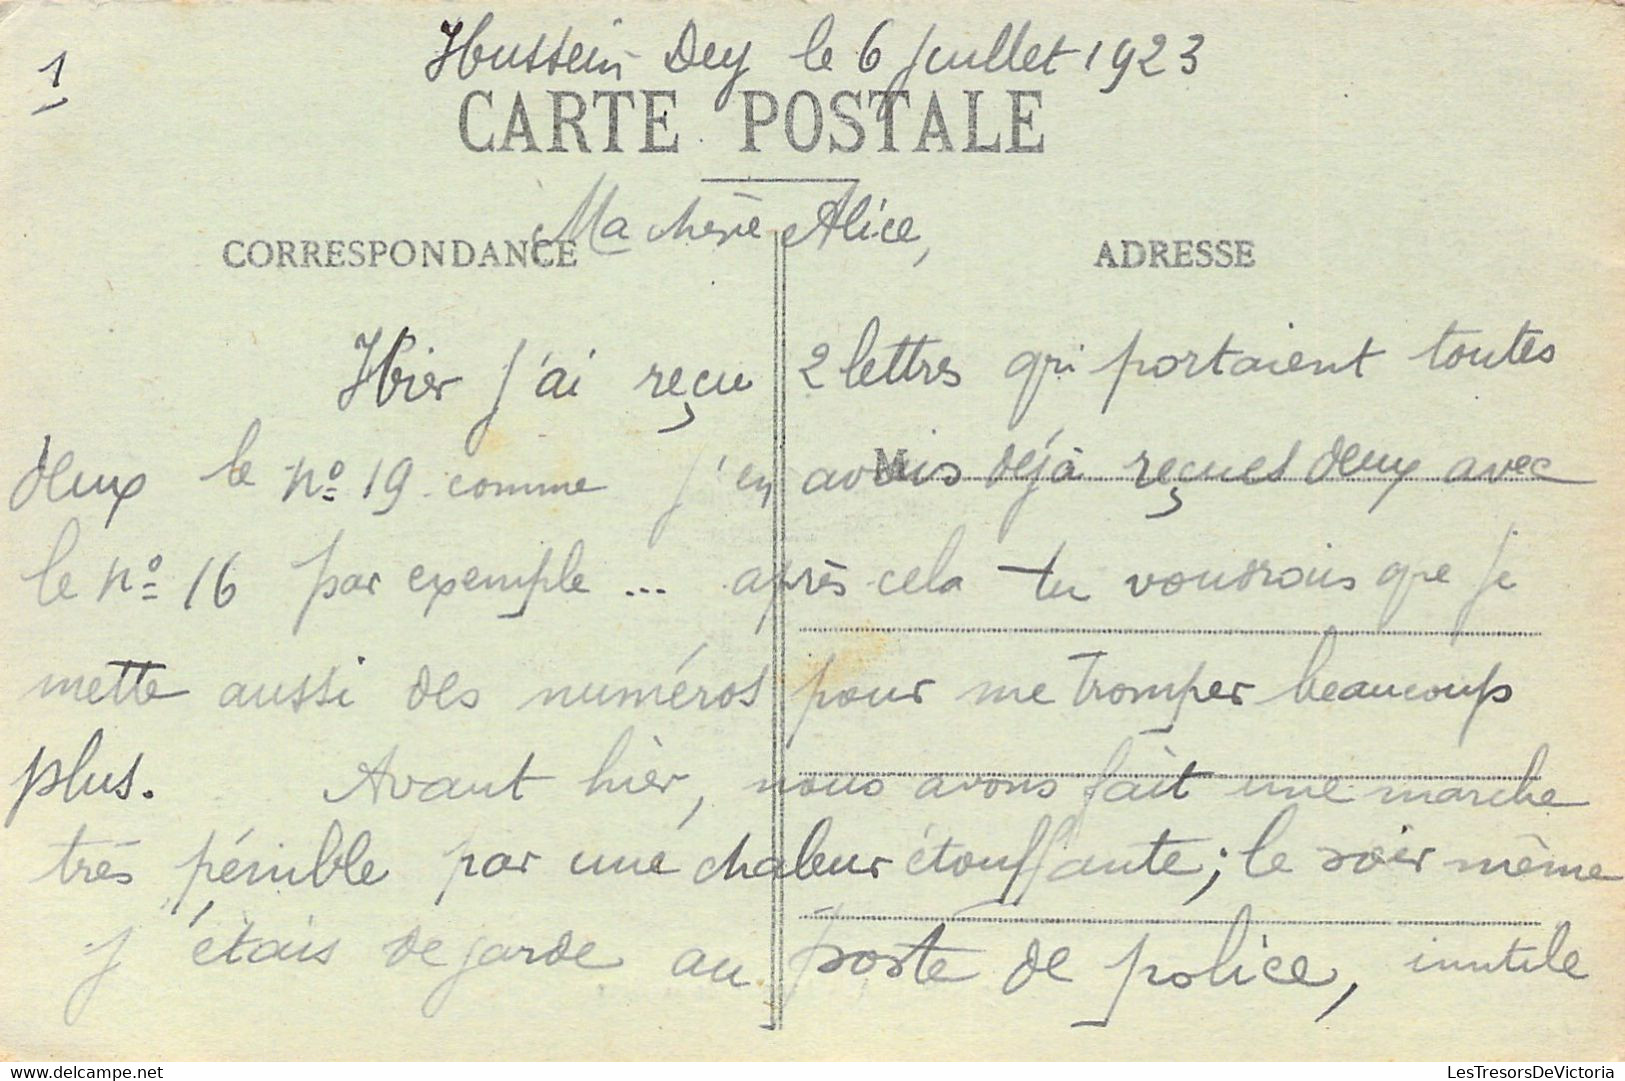 1
Hussein-Dey le 6 juillet 1923
CARTE POSTALE
Ma chère Alice,
CORRESPONDANCE
ADRESSE
Hier j'ai reçu 2 lettres qui portaient toutes
deux le nº 19 comme j'en avais déjà reçues deux avec
M
le nº 16 par exemple ... après cela tu voudrais que je
mette aussi des numéros pour me tromper beaucoup
plus. Avant hier, nous avons fait une marche
très pénible par une chaleur étouffante; le soir même
j'étais de garde au poste de police, inutile
delcampe.net
LesTresorsDeVictoria